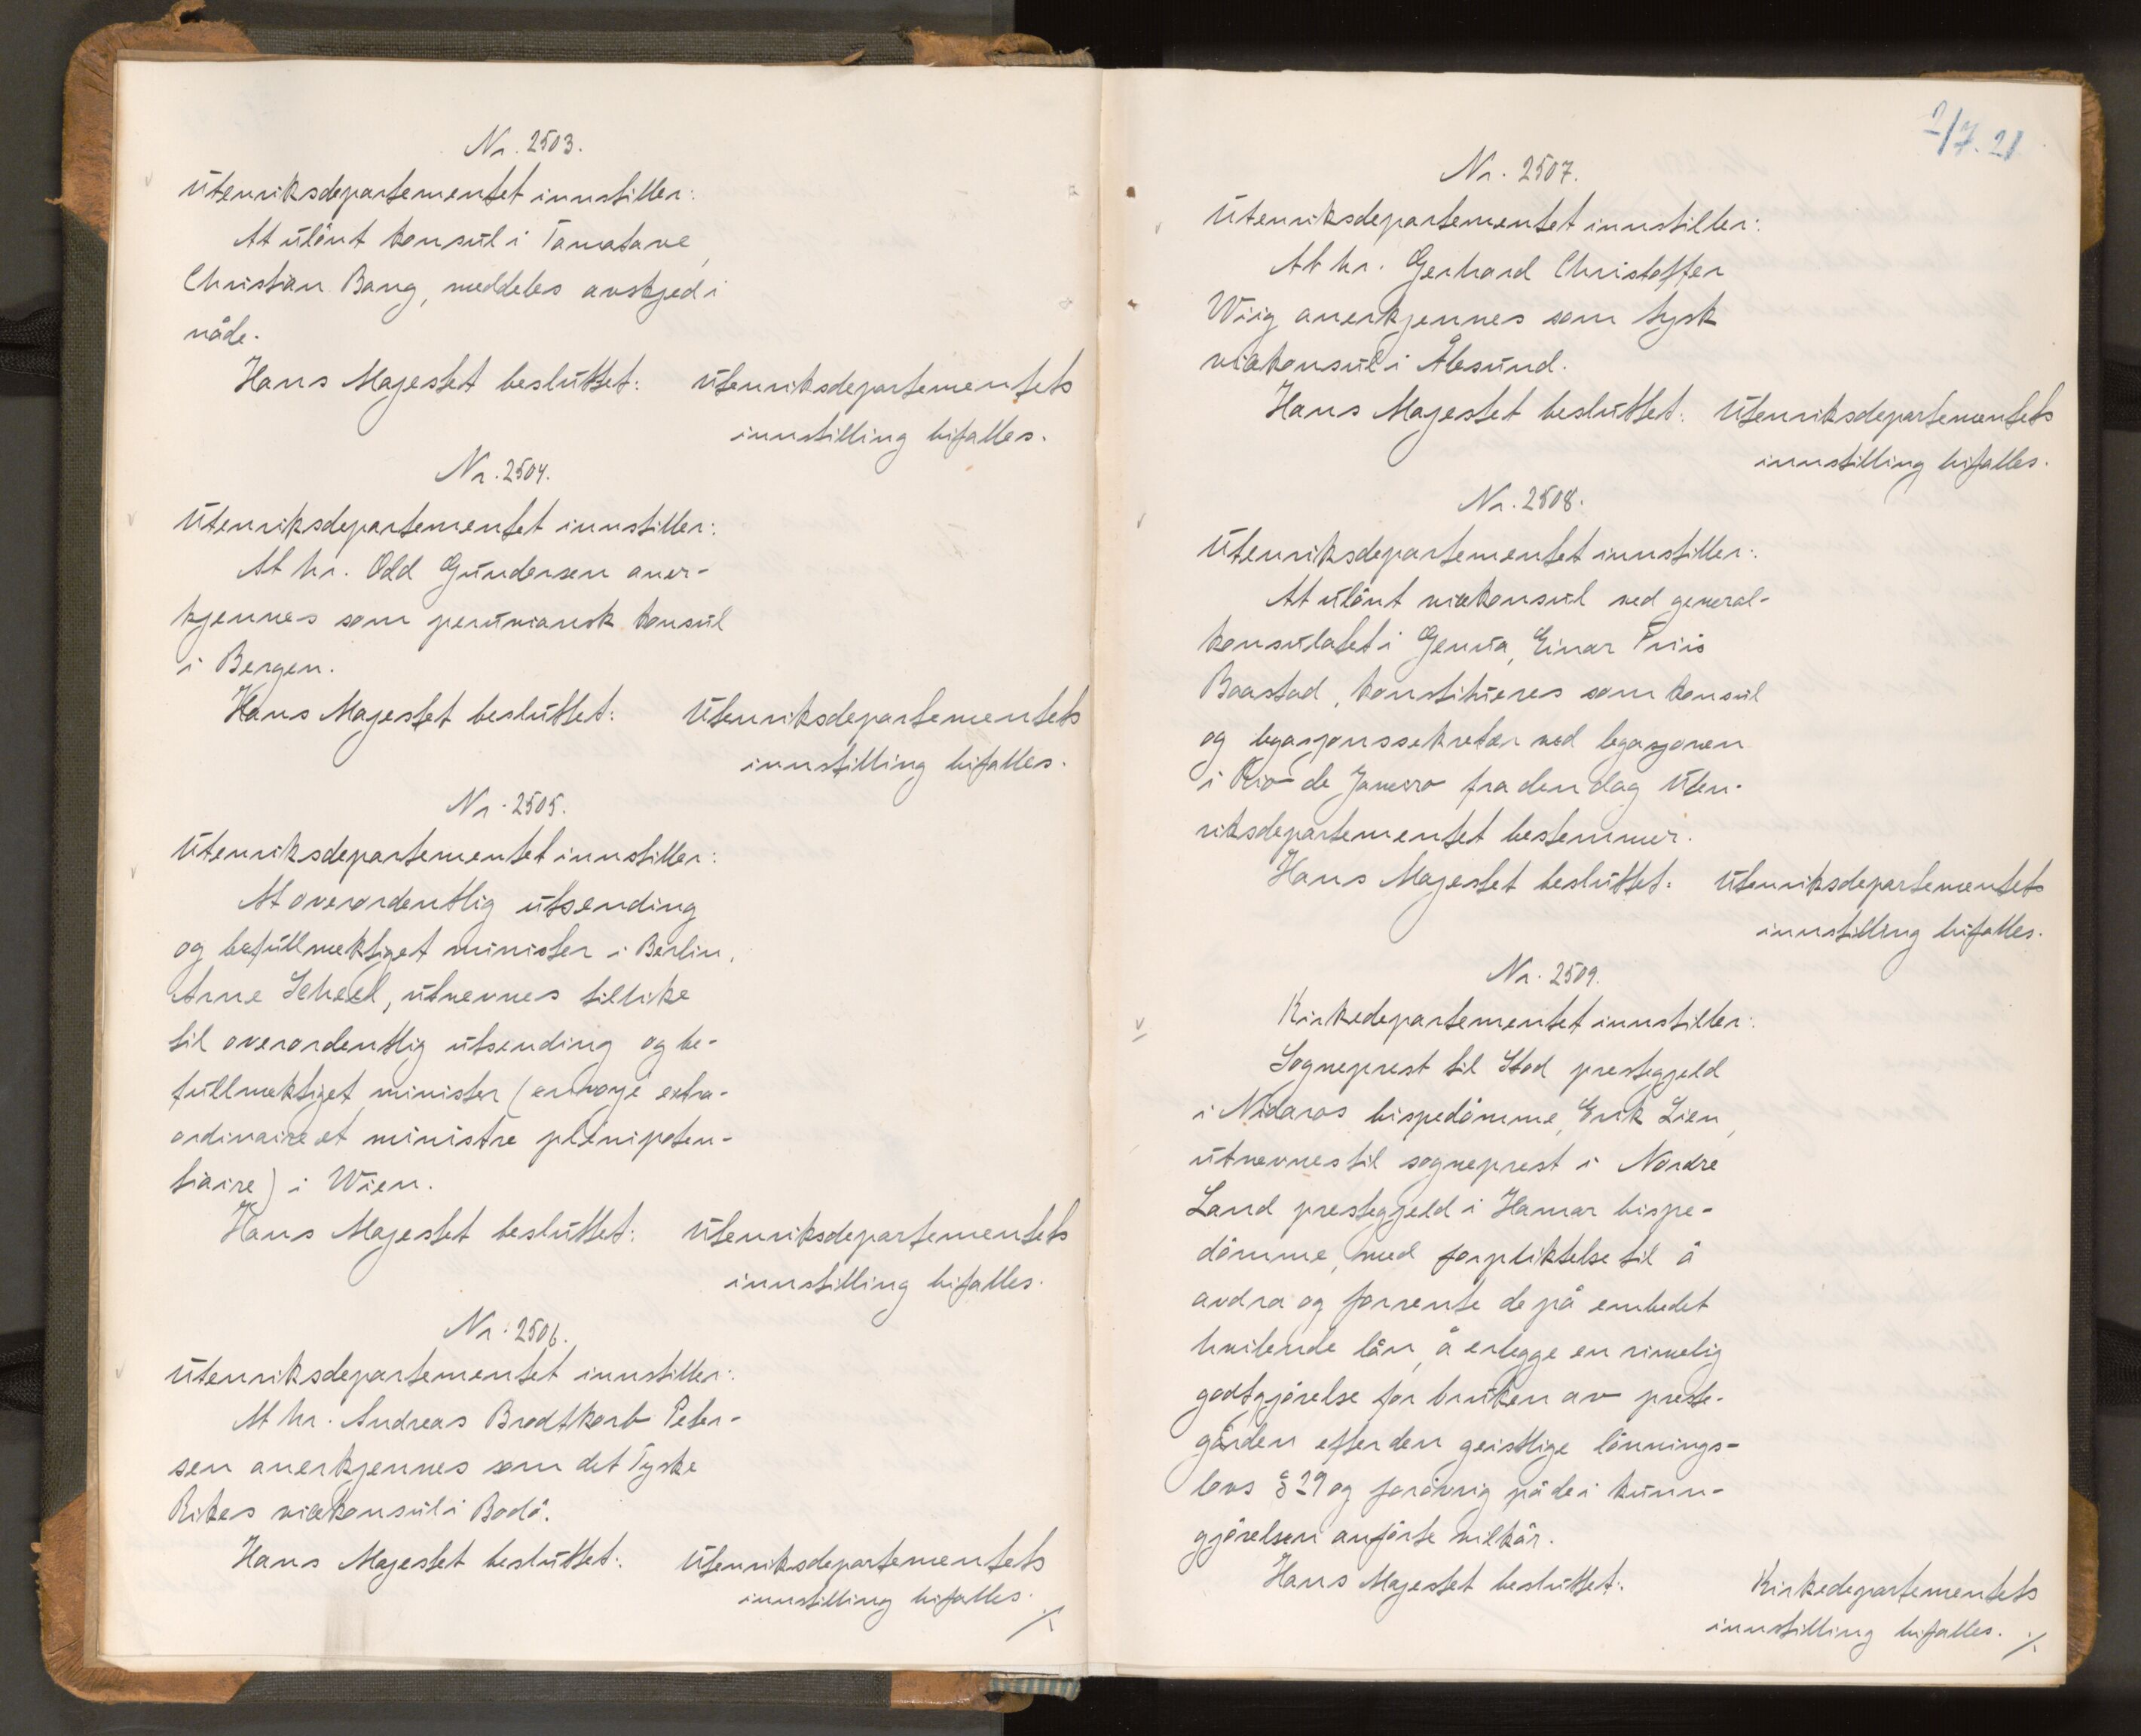 Nr. 2503.
Utenriksdepartementet innstiller:
At ulønt konsul i Tamatave,
Christian Bang, meddeles avskjed i
nåde.
Hans Majestet besluttet: Utenriksdepartementets
innstilling bifalles.
Nr. 2504.
Utenriksdepartementet innstiller:
At hr. Odd Gundersen aner-
kjennes som peruviansk konsul
i Bergen.
Hans Majestet besluttet: Utenriksdepartementets
innstilling bifalles.
Nr. 2505.
Utenriksdepartementet innstiller:
At overordentlig utsending
og befullmektiget minister i Berlin,
Arne Scheel, utnevnes tillike
til overordentlig utsending og be-
fullmektiget minister (envoyé extra-
ordinaire et ministre plénipoten-
tiaire) i Wien.
Hans Majestet besluttet: Utenriksdepartementets
innstilling bifalles.
Nr. 2506.
Utenriksdepartementet innstiller:
At hr. Andreas Brodtkorb Peter-
sen anerkjennes som det Tyske
Rikes visekonsul i Bodø.
Hans Majestet besluttet: Utenriksdepartementets
innstilling bifalles.
./.
2/7.21
Nr. 2507.
Utenriksdepartementet innstiller:
At hr. Gerhard Christoffer
Wiig anerkjennes som tysk
visekonsul i Ålesund.
Hans Majestet besluttet: Utenriksdepartementets
innstilling bifalles.
Nr. 2508.
Utenriksdepartementet innstiller:
At ulønt visekonsul ved general-
konsulatet i Genua, Einar
Baastad, konstitueres som konsul
og legasjonssekretær ved legasjonen
i Rio de Janeiro fra den dag Uten-
riksdepartementet bestemmer.
Hans Majestet besluttet: Utenriksdepartementets
innstilling bifalles.
Nr. 2509.
Kirkedepartementet innstiller:
Sogneprest til Stod prestegjeld
i Nidaros bispedømme, Erik Lien,
utnevnes til sogneprest i Nordre
Land prestegjeld i Hamar bispe-
dømme, med forpliktelse til å
avdra og forrente de på embedet
hvilende lån, å erlegge en rimelig
godtgjørelse for bruken av preste-
gården efter den geistlige lønnings-
lovs § 29 og forøvrig på de i kunn-
gjørelsen anførte vilkår.
Hans Majestet besluttet: Kirkedepartementets
innstilling bifalles. ./.